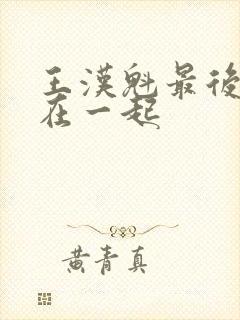 王漢魁最後
在一起
黃青真